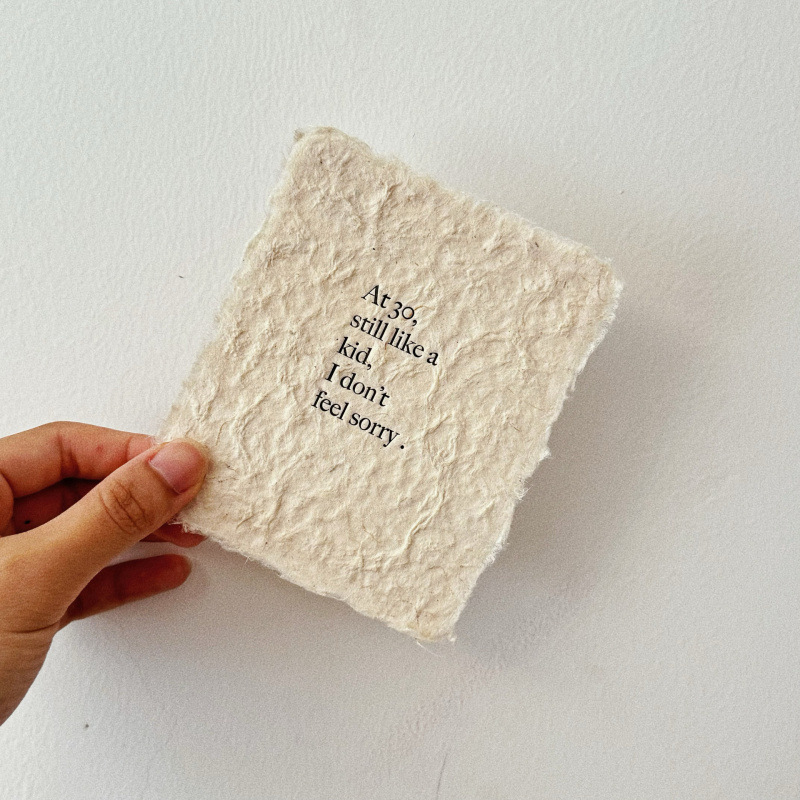 At 30,
still like a
kid,
I don't
feel sorry.